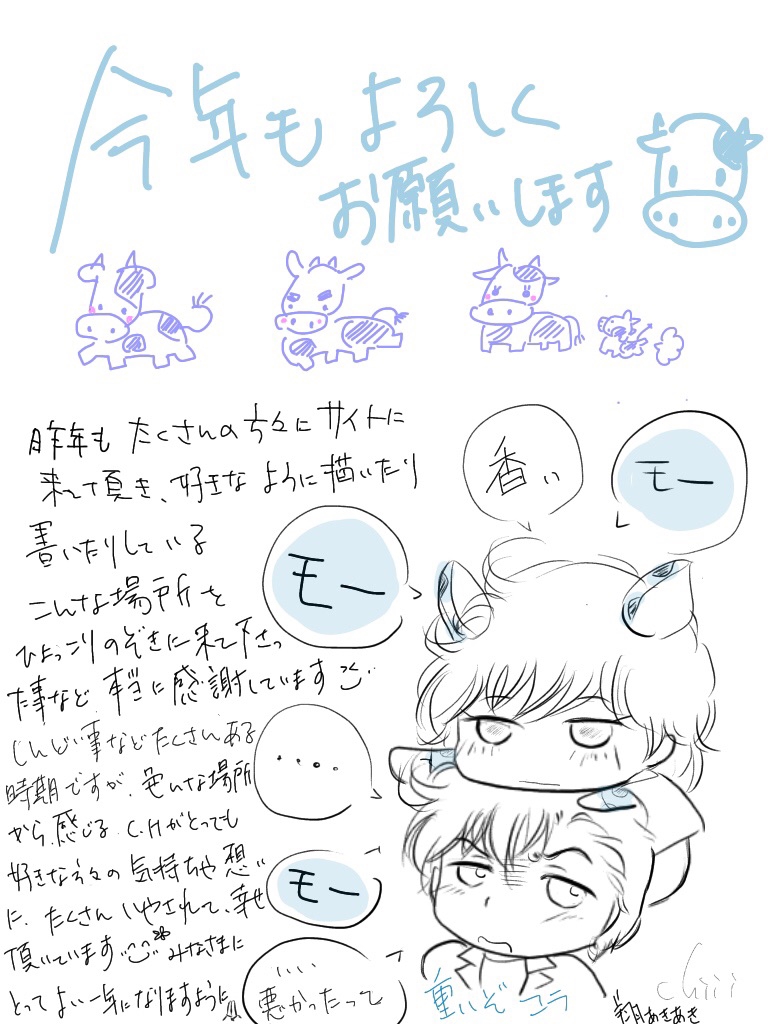 今年もよろしく
お願いします
昨年もたくさんの方々にサイトに
来て頂き、好きなように描いたり
書いたりしている
こんな場所を
ひょっこりのぞきに来て下さっ
た事など本当に感謝しています
しんどい事などたくさんある
時期ですが、色んな場所
から感じる C.Hがとっても
好きな方々の気持ちや想い
に、たくさんいやされて、幸せ
頂いています みなさまに
とってよい一年になりますように
香い
モー
モー
....
モー
悪かったって
重いぞコラ
chiii